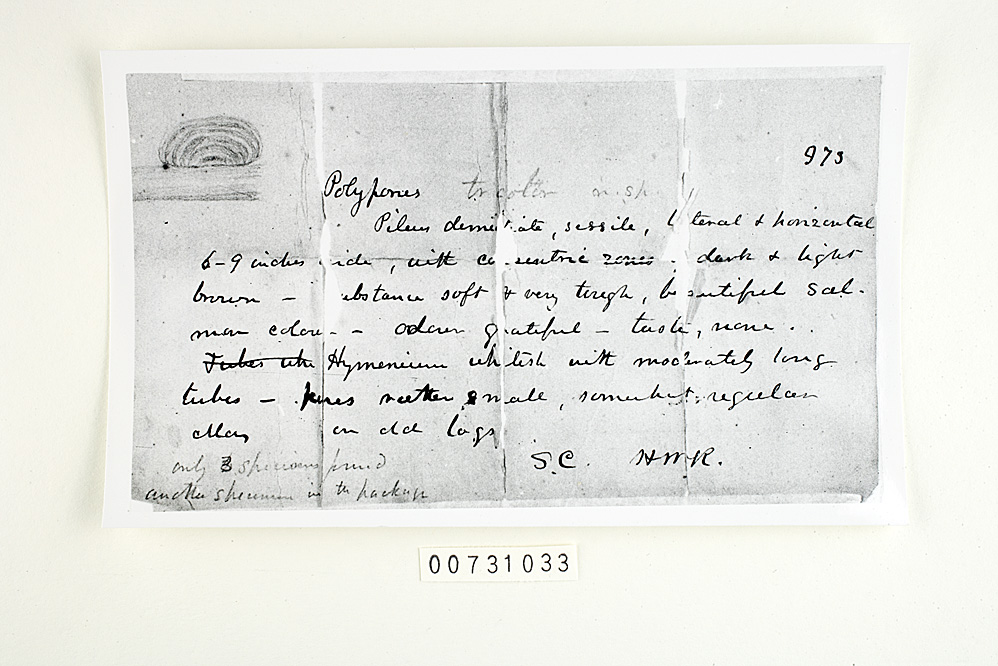 973
Polyporus tricolor n. sp.
Pileus demidiate, sessile, lateral & horizontal
6-9 inches wide, with concentric zones. dark & light
brown - substance soft & very tough, beautiful sal-
mon colour - odour grateful - taste, none.
Tubes whi Hymenium whitish with moderately long
tubes - pores rather small, somewhat regular
May on old logs
S.C. HWR.
only 3 specimens found
another specimen in the package
00731033